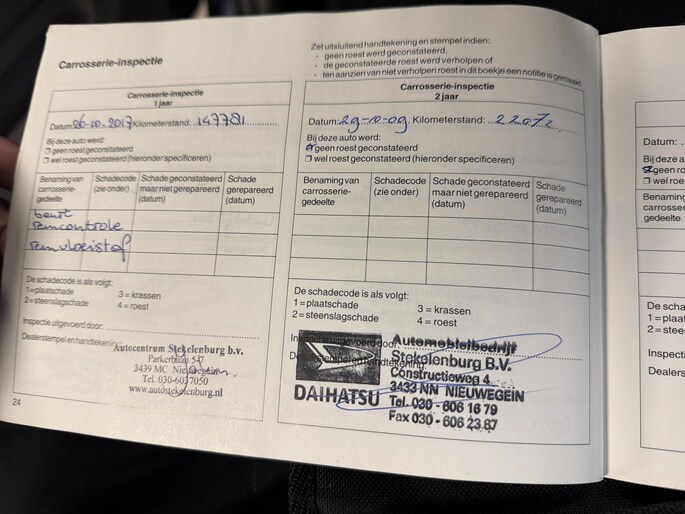 Carrosserie-inspectie
Zet uitsluitend handtekening en stempel indien:
- geen roest werd geconstateerd,
- de geconstateerde roest werd verholpen of
- ten aanzien van niet verholpen roest in dit boekje een notitie is gemaakt.
Carrosserie-inspectie
1 jaar
Datum: 26-10-2017 Kilometerstand: 147781
Bij deze auto werd:
geen roest geconstateerd
wel roest geconstateerd (hieronder specificeren)
Benaming van carrosserie-gedeelte
Schadecode (zie onder)
Schade geconstateerd maar niet gerepareerd (datum)
Schade gerepareerd (datum)
beurt
remcontrole
remvloeistof
De schadecode is als volgt:
1 = plaatschade 3 = krassen
2 = steenslagschade 4 = roest
Inspectie uitgevoerd door:
Dealerstempel en handtekening:
Autocentrum Stekelenburg b.v.
Parkerbaan 547
3439 MC Nieuwegein
Tel. 030-6037050
www.autostekelenburg.nl
24
Carrosserie-inspectie
2 jaar
Datum: 29-10-09. Kilometerstand: 22072
Bij deze auto werd:
geen roest geconstateerd
wel roest geconstateerd (hieronder specificeren)
Benaming van carrosserie-gedeelte
Schadecode (zie onder)
Schade geconstateerd maar niet gerepareerd (datum)
Schade gerepareerd (datum)
De schadecode is als volgt:
1 = plaatschade 3 = krassen
2 = steenslagschade 4 = roest
Automobielbedrijf
Stekelenburg B.V.
Constructieweg 4
3433 NN NIEUWEGEIN
DAIHATSU Tel. 030 - 606 16 79
Fax 030 - 606 23 87
Datum:
Bij deze a
geen ro
wel roe
Benaming
carrosser
gedeelte
De scha
1 = plaat
2 = stee
Inspecti
Dealers